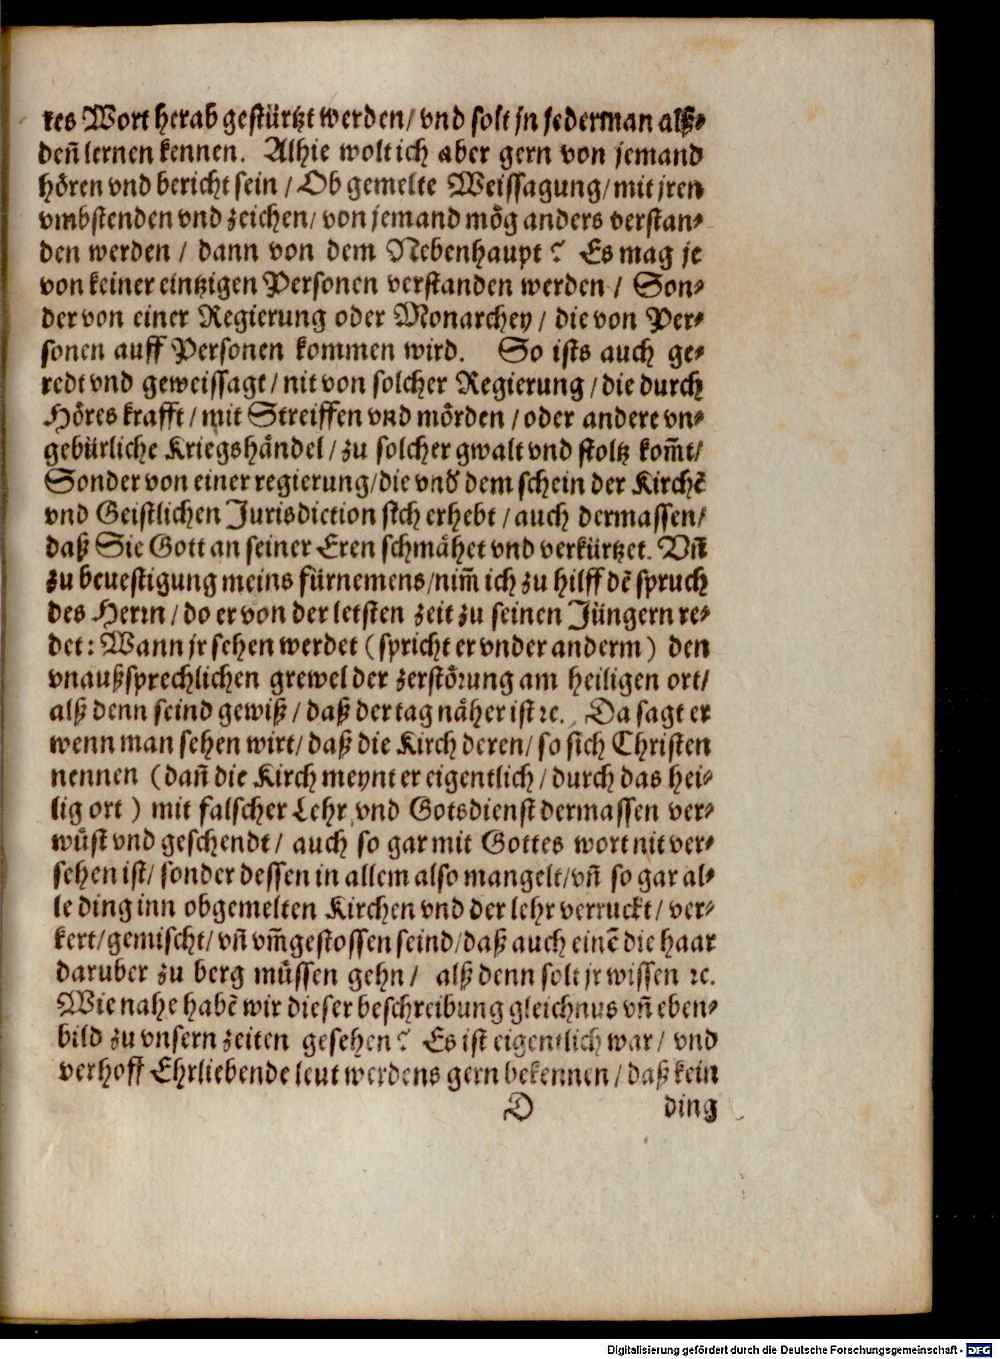 tes Wort herab gestürtzt werden/ vnd solt jn jederman alß⸗
deñ lernen kennen. Alhie wolt ich aber gern von jemand
hören vnd bericht sein / Ob gemelte Weissagung/ mit jren
vmbstenden vnd zeichen/ von jemand mög anders verstan⸗
den werden / dann von dem Nebenhaupt? Es mag je
von keiner eintzigen Personen verstanden werden / Son⸗
der von einer Regierung oder Monarchey / die von Per⸗
sonen auff Personen kommen wird. So ists auch ge⸗
redt vnd geweissagt / nit von solcher Regierung / die durch
Höres krafft / mit Streiffen vnd mörden / oder andere vn⸗
gebürliche Kriegshändel / zu solcher gwalt vnd stoltz kom̃t/
Sonder von einer regierung/ die vnd̕ dem schein der Kirchẽ
vnd Geistlichen Jurisdiction sich erhebt / auch dermassen/
daß Sie Gott an seiner Eren schmähet vnd verkürtzet. Vñ
zu beuestigung meins fürnemens/ nim̃ ich zu hilff dẽ spruch
des Herrn / do er von der letsten zeit zu seinen Jüngern re⸗
det: Wann jr sehen werdet (spricht er vnder anderm) den
vnaußsprechlichen grewel der zerstörung am heiligen ort/
alß denn seind gewiß / daß der tag näher ist ꝛc. Da sagt er
wenn man sehen wirt/ daß die Kirch deren/ so sich Christen
nennen (dañ die Kirch meynt er eigentlich / durch das hei⸗
lig ort) mit falscher Lehr vnd Gotsdienst dermassen ver⸗
wüst vnd geschendt / auch so gar mit Gottes wort nit ver⸗
sehen ist/ sonder dessen in allem also mangelt/ vñ so gar al⸗
le ding inn obgemelten Kirchen vnd der lehr verruckt/ ver⸗
kert/ gemischt/ vñ vm̃gestossen seind/ daß auch einẽ die haar
daruber zu berg müssen gehn / alß denn solt jr wissen ꝛc.
Wie nahe habẽ wir dieser beschreibung gleichnus vñ eben⸗
bild zu vnsern zeiten gesehen? Es ist eigentlich war / vnd
verhoff Ehrliebende leut werdens gern bekennen / daß kein
D ding
Digitalisierung gefördert durch die Deutsche Forschungsgemeinschaft - DFG